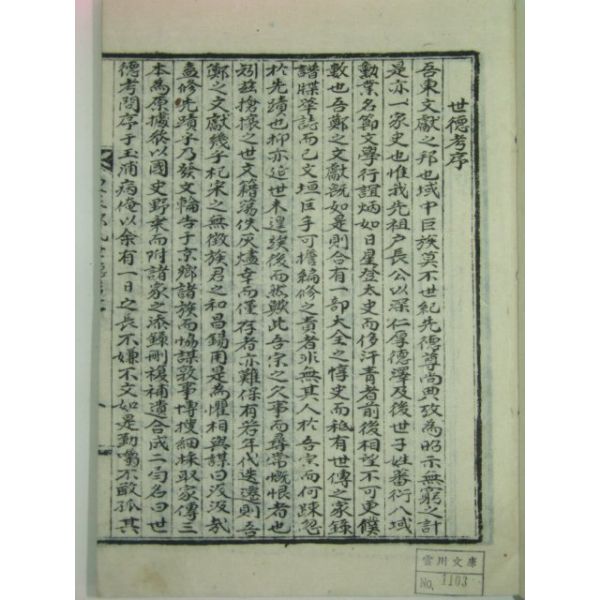 世德考序
吾東文獻之邦也域中巨族莫不世紀先德尊尚典攷為昭示無窮之計
是亦一家史也惟我先祖戶長公以深仁厚德澤及後世子姓蕃衍八域
勳業名節文學行誼炳如日星登太史而侈汗青者前後相望不可更僕
數也吾鄭之文獻旣如是則合有一部大全之惇史而秪有世傳之家錄
譜牒茔誌而已文垣巨手可擔編修之責者非無其人於吾宗而何踈忽
於先蹟也抑亦迨世未遑俟後而然歟此吾宗之欠事而尋常慨恨者也
矧玆搶攘之世文籍蕩佚灰燼幸而僅存者亦難保有若年代迭邅則吾
鄭之文獻幾乎杞宋之無徵族君之和昌錫用是為懼相與謀曰汲汲哉
盍修先蹟乎乃發文輪告于京鄉諸族而協謀敦事博搜細採取家傳三
本為原據叅以國史野乘而附諸家之添錄刪複補遺合成二局名曰世
德考問序于玉浦病俺以余有一日之長不嫌不文如是勤囑不敢孤其
雲川文庫
No. 1103